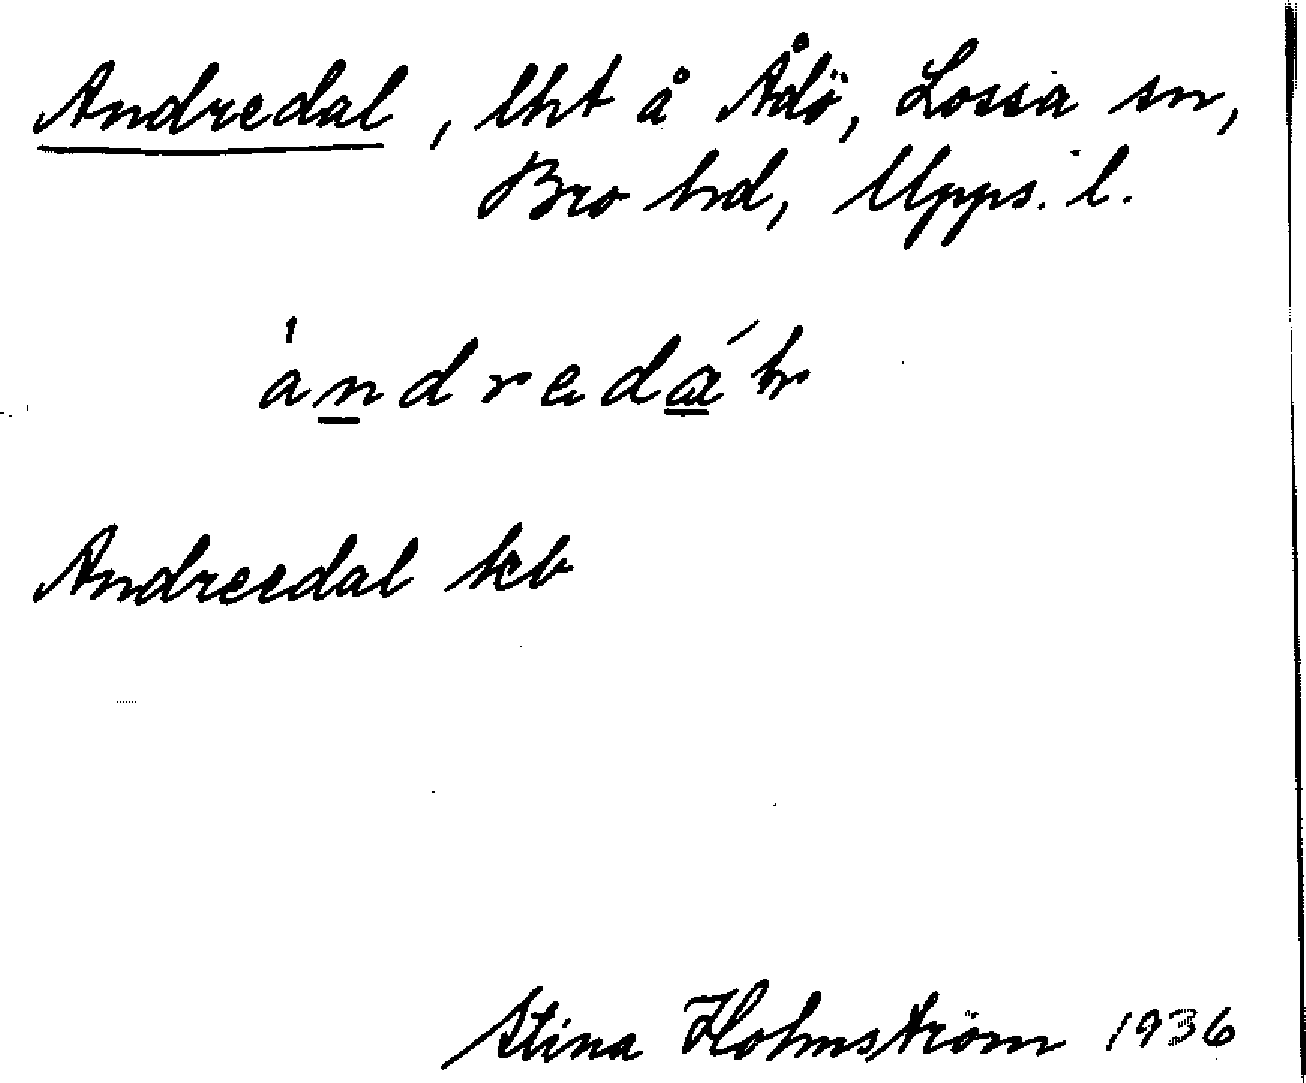 Andredal, lht å Ådö, Lossa sn,
Bro hd, Upps. l.
Andreedal kb
Stina Holmström 1936